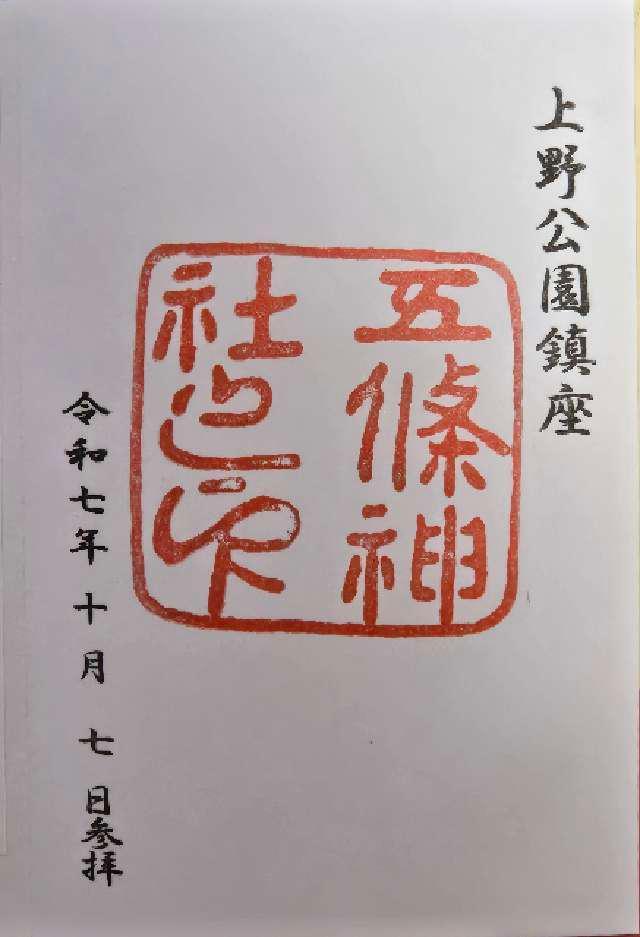 上野公園鎮座
五條神
社之印
令和七年十月七日参拝